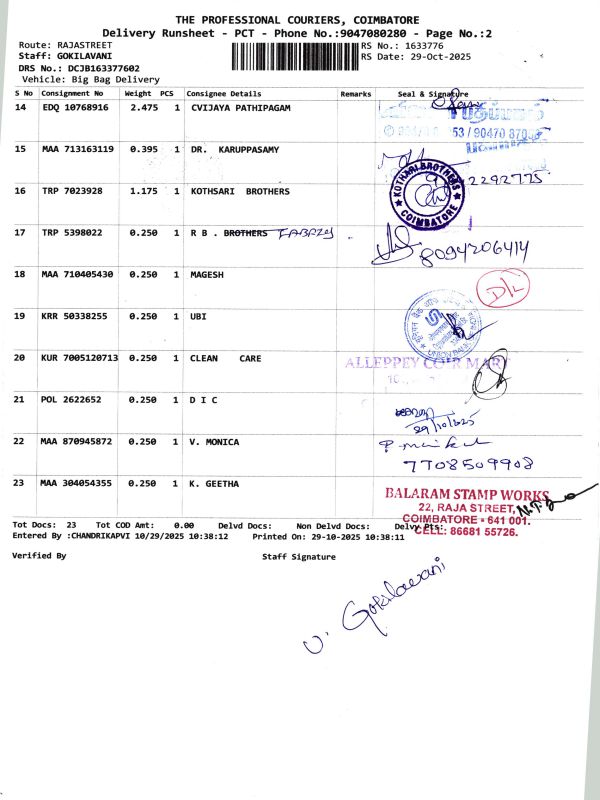 THE PROFESSIONAL COURIERS, COIMBATORE
Delivery Runsheet - PCT - Phone No.:9047080280 - Page No.:2
Route: RAJASTREET RS No.: 1633776
Staff: GOKILAVANI RS Date: 29-Oct-2025
DRS No.: DCJB163377602
Vehicle: Big Bag Delivery
S No Consignment No Weight PCS Consignee Details Remarks Seal & Signature
14 EDQ 10768916 2.475 1 CVIJAYA PATHIPAGAM
53/90470 870
15 MAA 713163119 0.395 1 DR. KARUPPASAMY
2292775
16 TRP 7023928 1.175 1 KOTHSARI BROTHERS
KOTHARI BROTHERS
COIMBATORE
17 TRP 5398022 0.250 1 R B . BROTHERS
8094206414
18 MAA 710405430 0.250 1 MAGESH
D/L
19 KRR 50338255 0.250 1 UBI
UNION BANK
20 KUR 7005120713 0.250 1 CLEAN CARE
ALLEPPEY COIR MART
21 POL 2622652 0.250 1 D I C
29/10/2025
22 MAA 870945872 0.250 1 V. MONICA
7708509908
23 MAA 304054355 0.250 1 K. GEETHA
BALARAM STAMP WORKS
22, RAJA STREET,
COIMBATORE - 641 001.
CELL: 86681 55726.
Tot Docs: 23 Tot COD Amt: 0.00 Delvd Docs: Non Delvd Docs: Delvy Pts:
Entered By :CHANDRIKAPVI 10/29/2025 10:38:12 Printed On: 29-10-2025 10:38:11
Verified By Staff Signature
V. Gokilavani